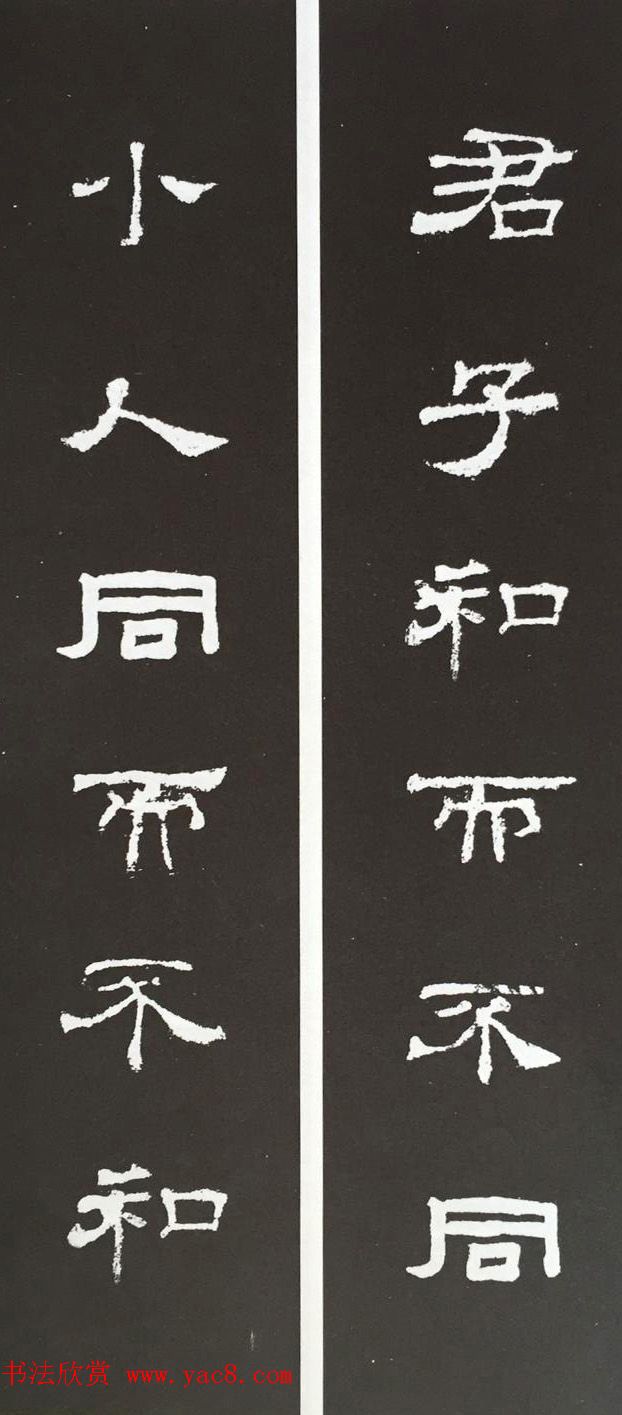 君子和而不同
小人同而不和
书法欣赏 www.yac8.com